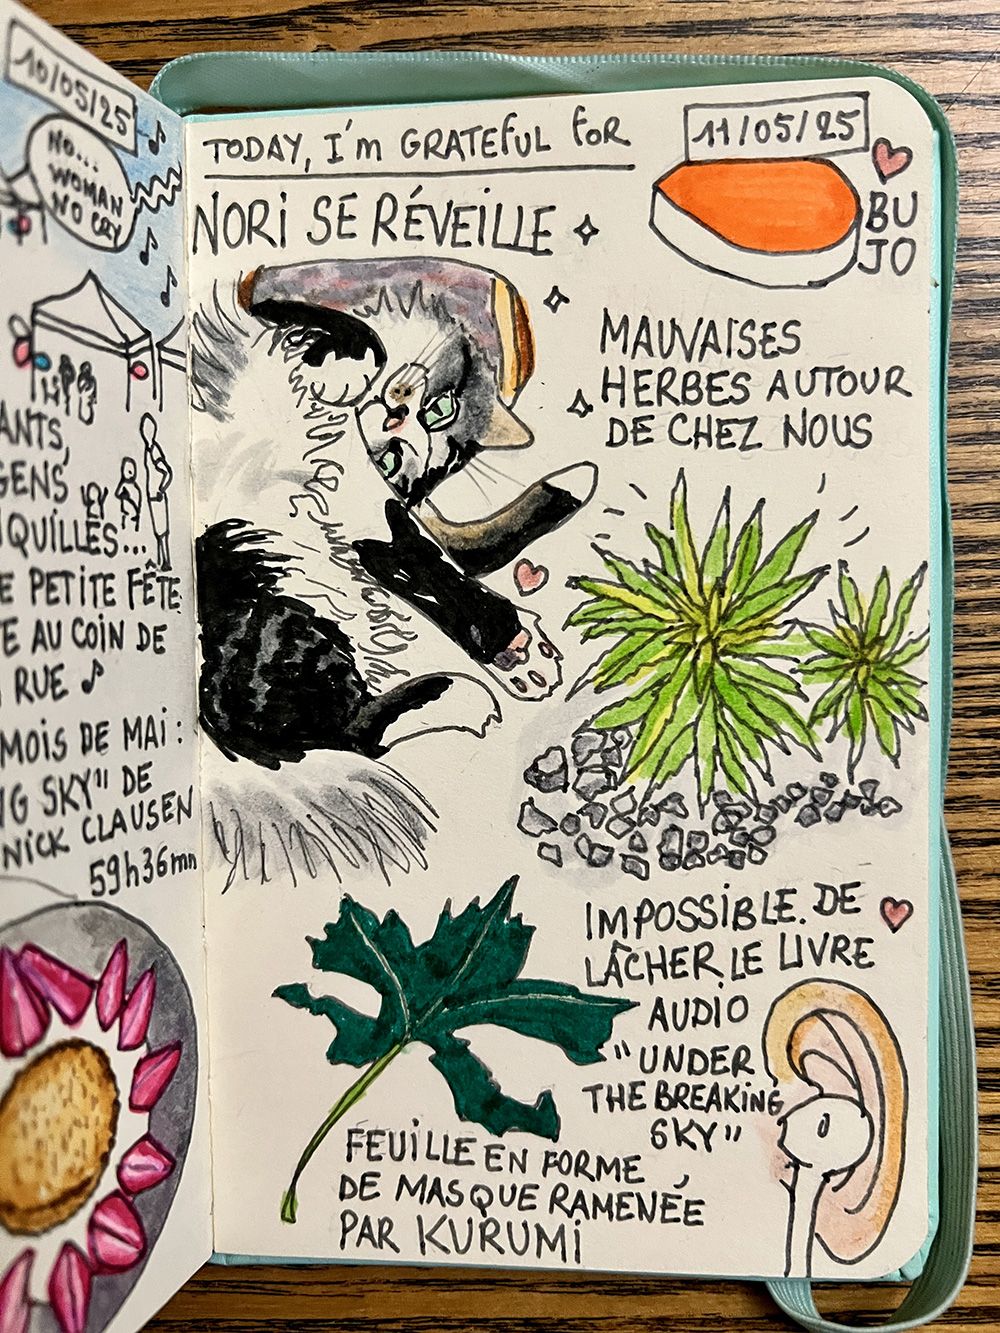 10/05/25
NO...
WOMAN
NO CRY
ANTS,
GENS
QUILLES...
E PETITE FÊTE
E AU COIN DE
RUE
MOIS DE MAI:
NG SKY" DE
NICK CLAUSEN
59h36mn
TODAY, I'm GRATEFUL FOR
11/05/25
BU
JO
NORI SE RÉVEILLE
MAUVAISES
HERBES AUTOUR
DE CHEZ NOUS
IMPOSSIBLE DE
LÂCHER LE LIVRE
AUDIO
"UNDER
THE BREAKING
SKY"
FEUILLE EN FORME
DE MASQUE RAMENÉE
PAR KURUMI